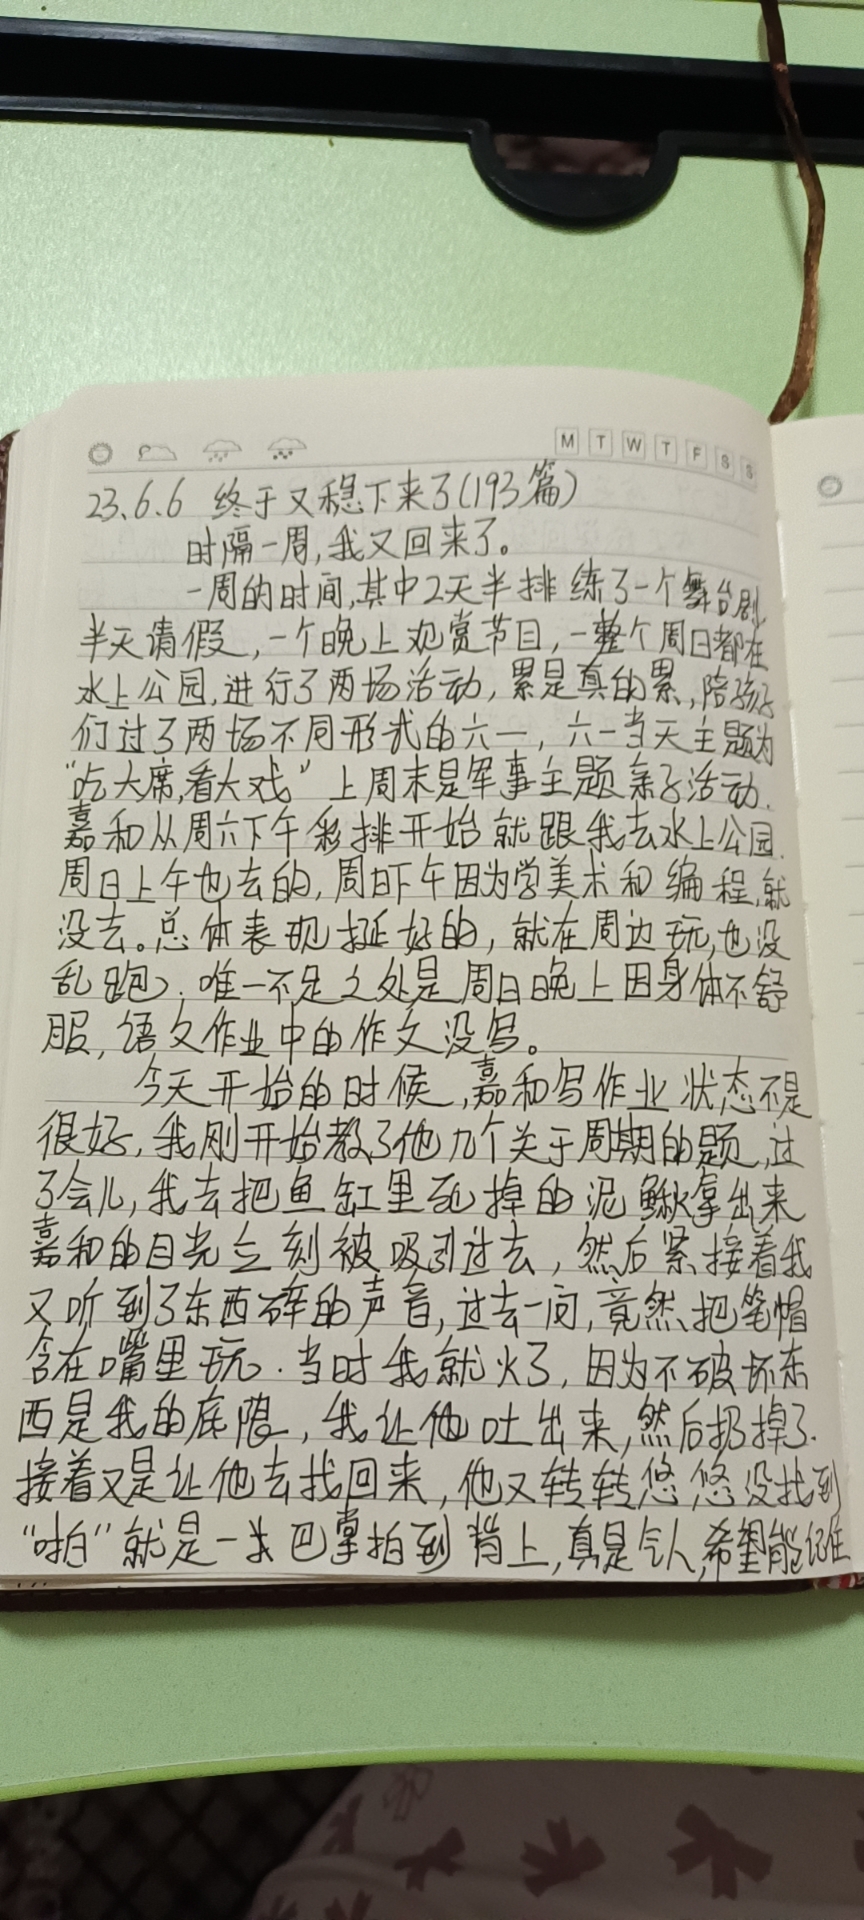 M T W T F S S
23.6.6 终于又稳下来了(193篇)
时隔一周,我又回来了。
一周的时间,其中2天半排练了一个舞台剧,
半天请假,一个晚上观赏节目,一整个周日都在
水上公园,进行了两场活动,累是真的累,陪孩子
们过了两场不同形式的六一,六一当天主题为
“吃大席,看大戏”上周末是军事主题亲子活动.
嘉和从周六下午彩排开始就跟我去水上公园.
周日上午也去的,周日下午因为学美术和编程,就
没去。总体表现挺好的,就在周边玩,也没
乱跑,唯一不足之处是周日晚上因身体不舒
服,语文作业中的作文没写。
今天开始的时候,嘉和写作业状态不是
很好,我刚开始教了他几个关于周期的题,过
了会儿,我去把鱼缸里死掉的泥鳅拿出来
嘉和的目光立刻被吸引过去,然后紧接着我
又听到了东西碎的声音,过去一问,竟然把笔帽
含在嘴里玩.当时我就火了,因为不破坏东
西是我的底限,我让他吐出来,然后扔掉了.
接着又是让他去找回来,他又转转悠悠没找到
“啪”就是一大巴掌拍到背上,真是气人,希望能记住